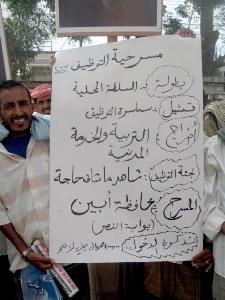 مسرحية التوظيف
بطولة: السلطة المحلية
تمثيل: سماسرة التوظيف
إخراج: التربية والخدمة
المدنية
لجنة التوظيف: شاهد ماشافش حاجة
المسرح: محافظة أبين
(بوابات النصر)
تذكرة الدخول: